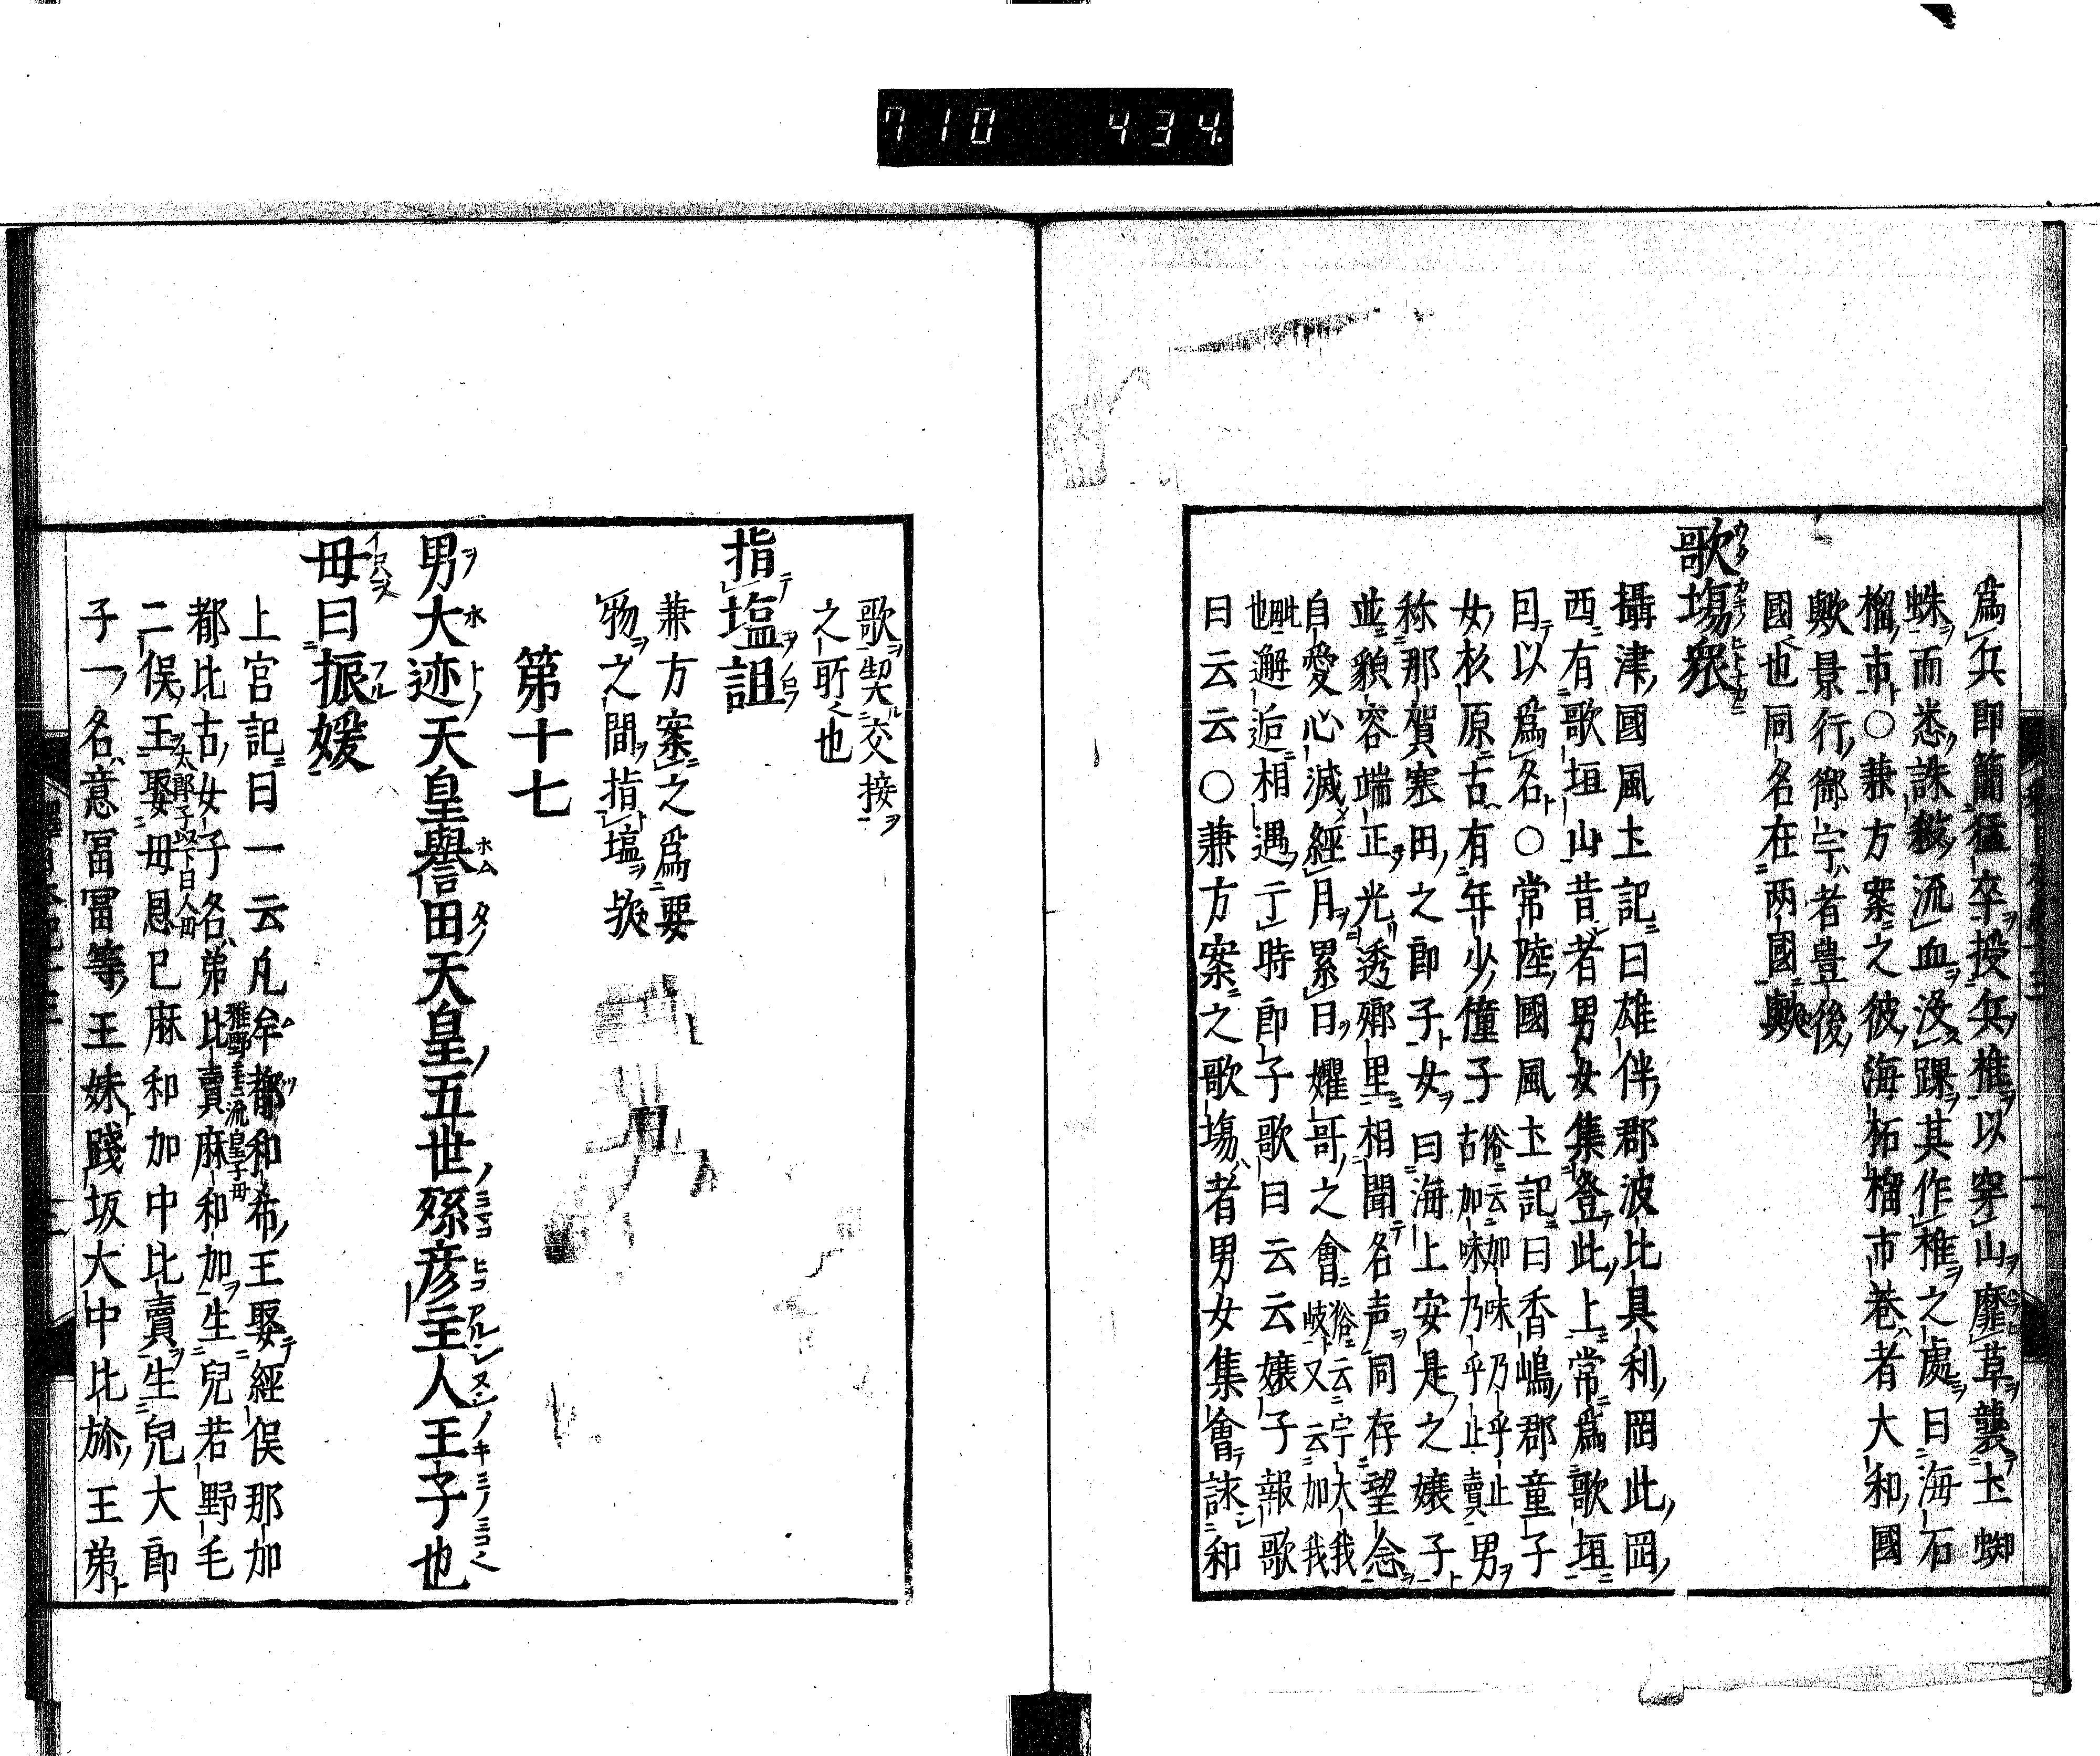 710 434
為兵即簡猛卒授兵椎以穿山靡草襲土蜘
蛛而悉誅殺流血没踝其作椎之處曰海石
榴市○兼方案之彼海柘榴市巷者大和國
歟景行御宇者豊後
國也同名在两國歟
歌塲衆
攝津國風土記曰雄伴郡波比具利岡此岡
西有歌垣山昔者男女集登此上常為歌垣
因以為名○常陸國風土記曰香嶋郡童子
女松原古有年少僮子俗云加味乃乎止古加味乃乎止賣男
称那賀寒田之郎子女曰海上安是之嬢子
並貌容端正光透郷里相聞名声同存望念
自愛心滅經月累日嬥哥之會俗云宇太我岐又云加我
毗也邂逅相遇于時郎子歌曰云云嬢子報歌
曰云云○兼方案之歌塲者男女集會詠和
歌契交接
之所也
指塩詛
兼方案之為要
物之間指塩欤
第十七
男大迹天皇譽田天皇五世孫彦主人王子也
母曰振媛
上官記曰一云凡牟都和希王娶經俣那加
都比古女子名弟比賣麻和加生兒若野毛
二俣王娶母恩己麻和加中比賣生兒大郎
子一名意冨冨等王妹踐坂大中比弥王弟